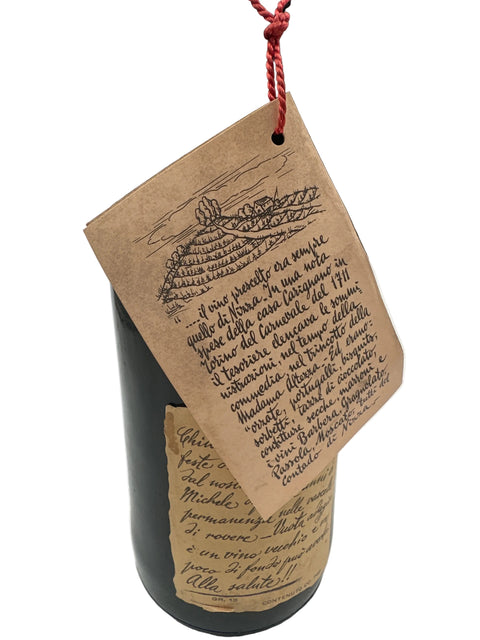 "... il vino prescelto era sempre
quello di Nizza. In una nota
spese della casa Carignano in
Torino del Carnevale del 1711
il tesoriere elencava le sommi-
nistrazioni, nel tempo della
commedia, nel trincotto della
Madama
Ed erano:
"orzate, portugalli, bisquits,
sorbetti, tazze di cioccolato,
confitture secche, marroni e
i vini Barbera, Grignolato,
Passola, Moscato, tutti del
contado di Nizza"
feste
dal nost
Michele
permanenza nelle
di rovere – Vuota
è un vino vecchio e
poco di fondo può
Alla salute!!
GR. 13 CONTENUTO